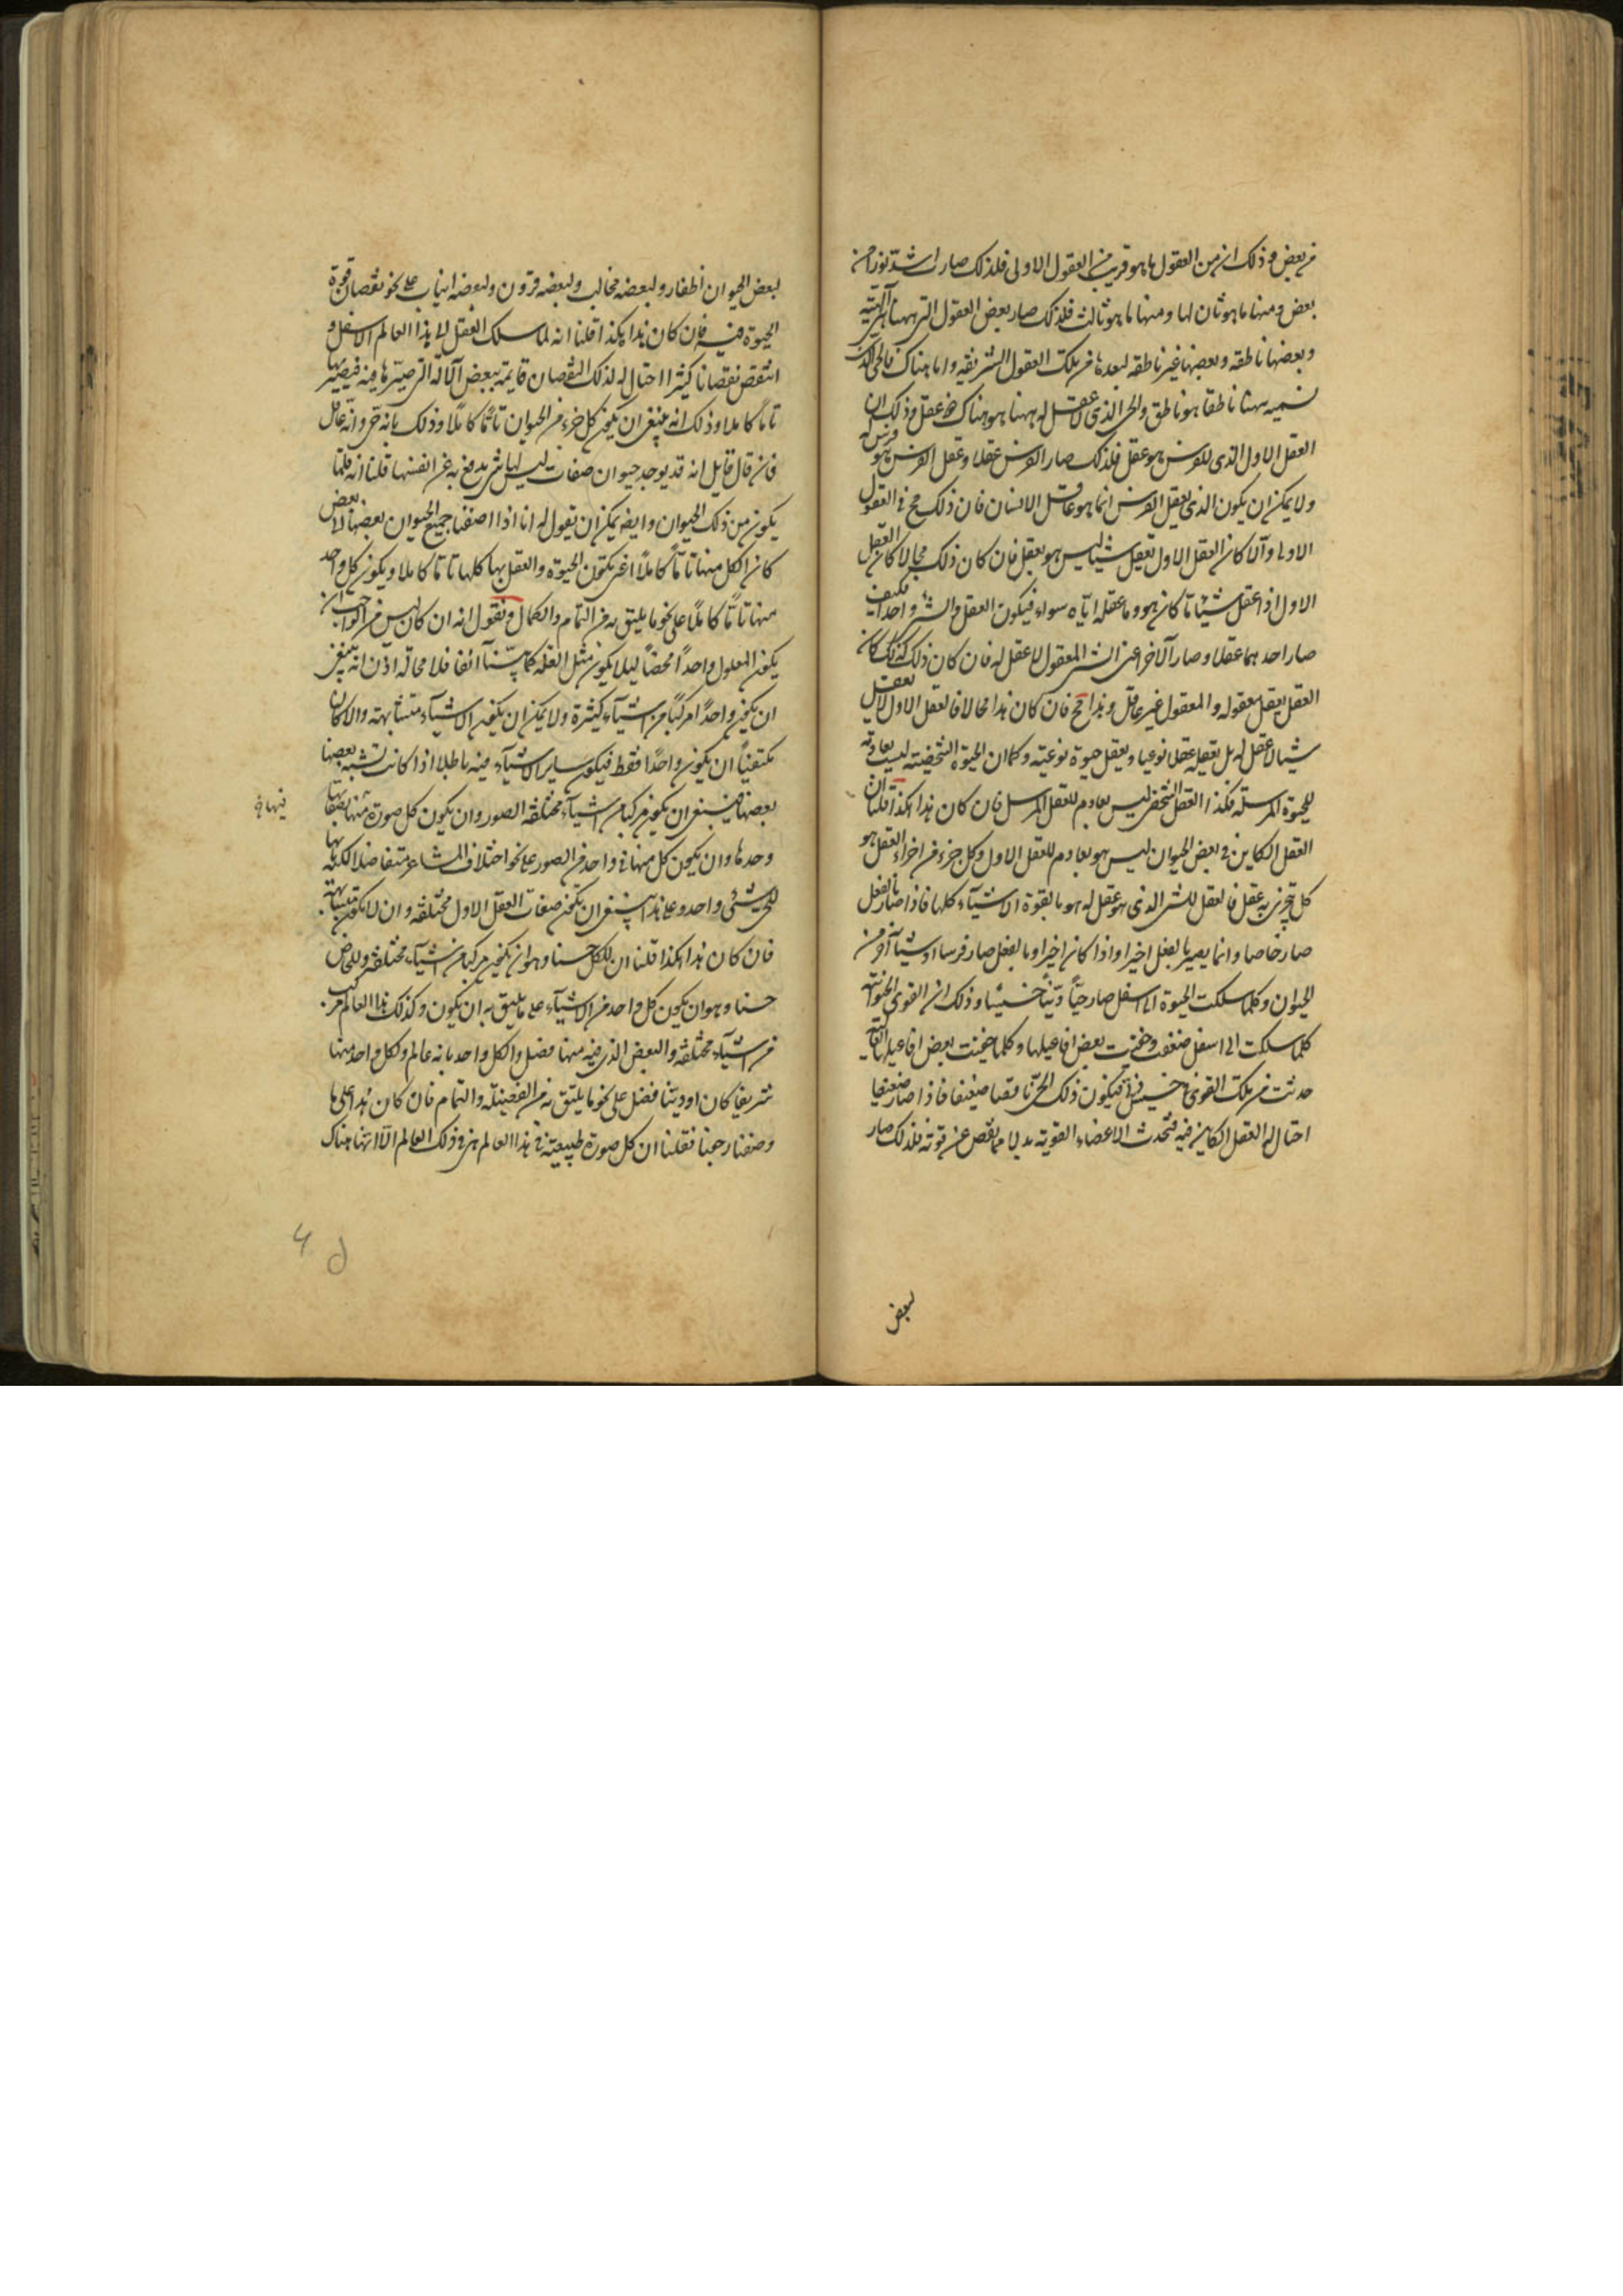 من بعض وذلك ان من العقول ما هو قريب من العقول الاولى فلذلك صار اشد نورا من
بعض ومنها ما هو ثان لها ومنها ما هو ثالث فلذلك صار بعض العقول التى ههنا الهية
وبعضها ناطقه وبعضها غير ناطقه لبعدها من تلك العقول الشريفه واما هناك فالحى الذى
نسميه ههنا ناطقا هو ناطق والحى الذى لا عقل له ههنا هو هناك ذو عقل وذلك ان
العقل الاول الذى للفرس هو عقل فلذلك صار الفرس عقلا وعقل الفرس هو فرس
ولا يمكن ان يكون الذى يعقل الفرس انما هو عاقل الانسان فان ذلك مح فى العقول
الاولى والا كان العقل الاول يعقل شيئا ليس هو بعقل فان كان ذلك محالا كان العقل
الاول اذا عقل شيئا ما كان هو وما عقله اياه سواء فيكون العقل والشئ واحدا فكيف
صار احدهما عقلا وصار الآخر اعنى الشئ المعقول لا عقل له فان كان ذلك كذلك كان
العقل يعقل معقوله والمعقول غير عاقل وهذا مح فان كان هذا محالا فالعقل الاول لا يعقل
شيئا لا عقل له بل يعقله عقلا نوعيا ويعقل حيوة نوعية وكما ان الحيوة الشخصية ليست بعادمة
للحيوة المرسلة فكذا العقل الشخصى ليس بعادم للعقل المرسل فان كان هذا هكذا قلنا ان
العقل الكاين فى بعض الحيوان ليس هو بعادم للعقل الاول وكل جزء من اجزاء العقل هو
كل يتجزى به عقل فالعقل للشئ الذى هو عقل له هو بالقوة الاشياء كلها فاذا صار بالفعل
صار خاصا وانما يصير بالفعل اخيرا واذا كان اخيرا وبالفعل صار فرسا او شيئا آخر من
الحيوان وكلما سلكت الحيوة الى اسفل صار حيا دنيا خسيسا وذلك ان القوى الحيوانية
كلما سلكت الى اسفل ضعفت وخفيت بعض افاعيلها وكلما خفيت بعض افاعيلها العالية
حدثت من تلك القوى حى خسيس دنى فيكون ذلك الحى ناقصا ضعيفا فاذا صار ضعيفا
احتال له العقل الكاين فيه فتحدث الاعضاء القوية بدلا مما نقص عن قوته فلذلك صار
لبعض
لبعض الحيوان اظفار ولبعضه مخالب ولبعضه قرون ولبعضه انياب على نحو نقصان قوة
الحيوة فيه فان كان هذا هكذا قلنا انه لما سلك العقل الى هذا العالم الاسفل و
انتقص نقصانا كثيرا احتال له لذلك النقصان فاتمه ببعض آلاته التى صيرها فيه فيصير بها
تاما كاملا وذلك انه ينبغى ان يكون كل جزء من الحيوان تاما كاملا وذلك بانه حى وانه عاقل
فان قال قايل انه قد يوجد حيوان ضعاف ليس لها شئ يدفع به عن انفسها قلنا انه قلما
يكون من ذلك الحيوان وايضا يمكن ان نقول له انا اذا اضفنا جميع الحيوان بعضها الى بعض
كان الكل منها تاما كاملا اعنى يكون الحيوة والعقل بها كلها تاما كاملا ويكون كل واحد
منها تاما كاملا على نحو ما يليق به من التمام والكمال ونقول انه ان كان ليس من الواجب ان
يكون المعلول واحدا محضا ليلا يكون مثل العلة كما بينا آنفا فلا محالة اذن انه ينبغى
ان يكون واحدا مركبا من اشياء كثيرة ولا يمكن ان يكون الاشياء متشابهة والا كان
مكتفيا ان يكون واحدا فقط فيكون ساير الاشياء فيه باطلا اذا كانت تشبه بعضها
بعضا فينبغى ان يكون مركبا من اشياء مختلفة الصور وان يكون كل صورة منها بصفاتها
فيها خ
وحدها وان يكون كل منها فى واحد من الصور على نحو اختلاف المشاعر متفاضلا لكنها بها
للحى شئ واحد وعلى هذا ينبغى ان يكون صفات العقل الاول مختلفة وان لا يكون متشابهة
فان كان هذا هكذا قلنا ان للكل حسنا وهو ان يكون مركبا من اشياء مختلفة وللخاص
حسنا وهو ان يكون كل واحد من الاشياء على ما يليق به ان يكون وكذلك هذا العالم مركب
من اشياء مختلفة والبعض الذى فيه منها فضل والكل واحد بانه عالم وكل واحد منها
شريفا كان او دنيا فضل على نحو ما يليق به من الفضيلة والتمام فان كان هذا على ما
وصفنا رجعنا فقلنا ان كل صورة طبيعية فى هذا العالم هى فى ذلك العالم الا انها هناك